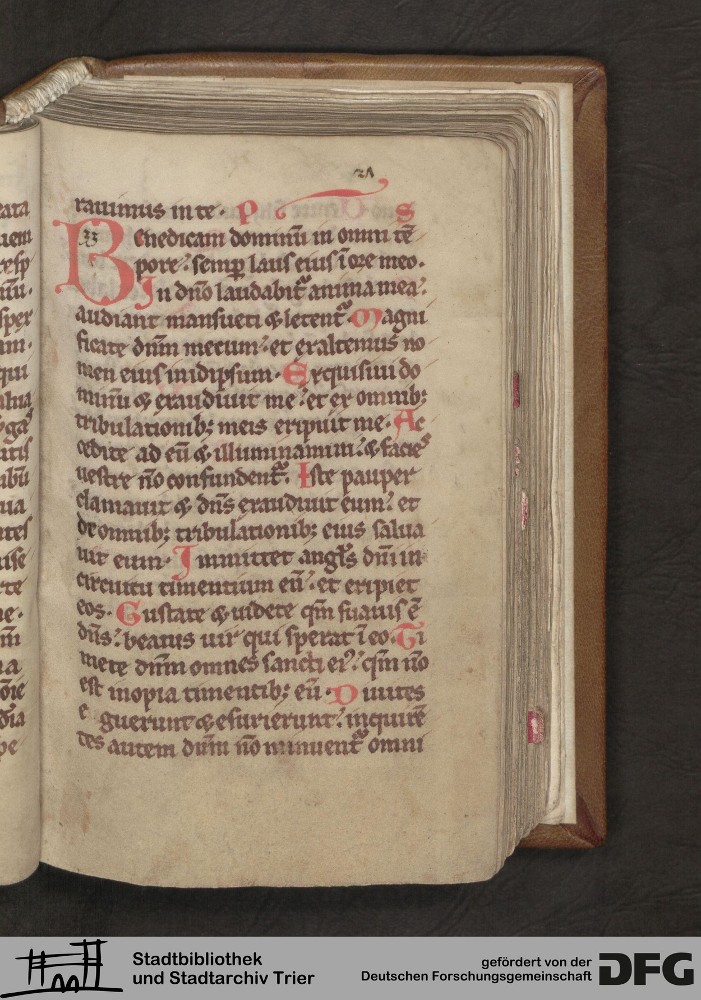 21
rauimus in te. P S
33 Benedicam dominū in omni tē
pore. semꝑ laus eius ī ore meo.
In dño laudabit᷑ anima mea.
audiant mansueti & letent᷑. Magni
ficate dñm mecum. et exaltemus no
men eius in idipsum. Exquisiui do
minū & exaudiuit me. et ex omnib;
tribulationib; meis eripuit me. Ac
cedite ad eū & illuminamini. & facieˢ
uestre ño confundent᷑. Iste pauper
clamauit & dñs exaudiuit eum. et
de omnib; tribulationib; eius salua
uit eum. Inmittet angl̄s dñi in
circuitu timentium eū. et eripiet
eos. Gustate & uidete qm̄ suauis ē
dñs. beatus uir qui sperat ī eo. Ti
mete dñm omnes sancti eiꝰ. qm̄ ño
est inopia timentib; eū. Diuites
eguerunt & esurierunt. inquirē
tes autem dñm ño minuent᷑ omni
ata
uem
resp
spex
qui
ua
tes
uise
rte
ne.
Stadtbibliothek
und Stadtarchiv Trier
gefördert von der
Deutschen Forschungsgemeinschaft
DFG